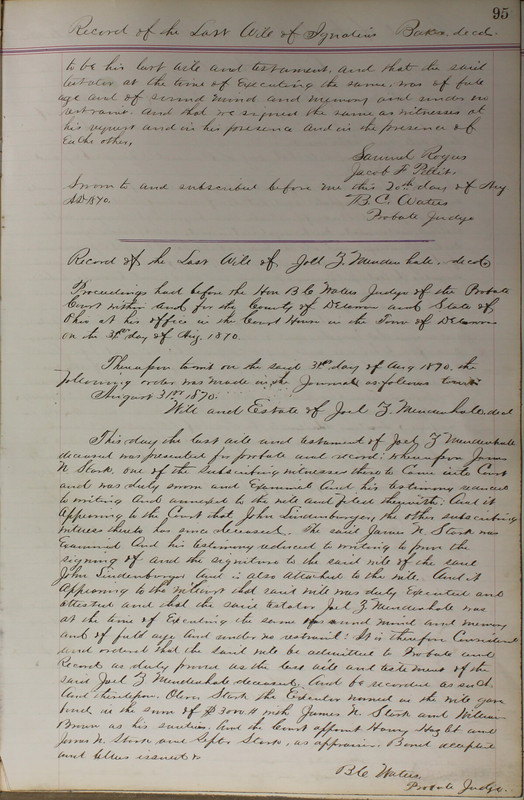 95
Record of the Last Will of Ignatius Baker, decd.
to be his last will and testament, and that the said
testator at the time of Executing the same, was of full
age and of sound mind and memory and under no
restraint. And that we signed the same as witnesses at
his request and in his presence and in the presence of
Each other,
Samuel Rogers
Jacob F
Sworn to and subscribed before me this 20th day of Aug
A.D. 1870.
B. C. Waters
Probate Judge
Record of the Last Will of Joel Z. Mendenhall, decd.
Proceedings had before the Hon B C Waters Judge of the Probate
Court within and for the County of Delaware and State of
Ohio at his office in the Court House in the Town of Delaware
on the 31st day of Aug. 1870.
Thereupon towit on the said 31st day of Aug 1870. the
following order was made in the Journal as follows towit:
August 31st 1870.
Will and Estate of Joel Z. Mendenhall decd
This day the last will and testament of Joel Z Mendenhall
deceased was presented for probate and record: whereupon James
N Stark, one of the subscribing witnesses thereto Came into Court
and was duly sworn and Examined And his testimony reduced
to writing And annexed to the will and filed therewith: And it
appearing to the Court that John Lindenburger, the other subscribing
witness thereto has since deceased. The said James N. Stark was
Examined And his testimony reduced to writing to prove the
signing of and the signature to the said will of the said
John Lindenburger And is also attached to the will. And it
appearing to the that said will was duly Executed and
attested and that the said testator Joel Z Mendenhall was
at the time of Executing the same of sound mind and memory
and of full age And under no restraint: It is therefore Considered
and ordered that the said will be admitted to Probate and
Record as duly proved as the last will and testament of the
said Joel Z Mendenhall deceased. And be recorded as such.
And thereupon Oliver Stark the Executor named in the will gave
bond in the sum of $3000.00 with James N. Stark and William
Brown as his sureties. And the Court appoint Henry and
James N. Stark and Stark, as appraisers. Bond accepted
and letters issued
B C Waters
Probate Judge.